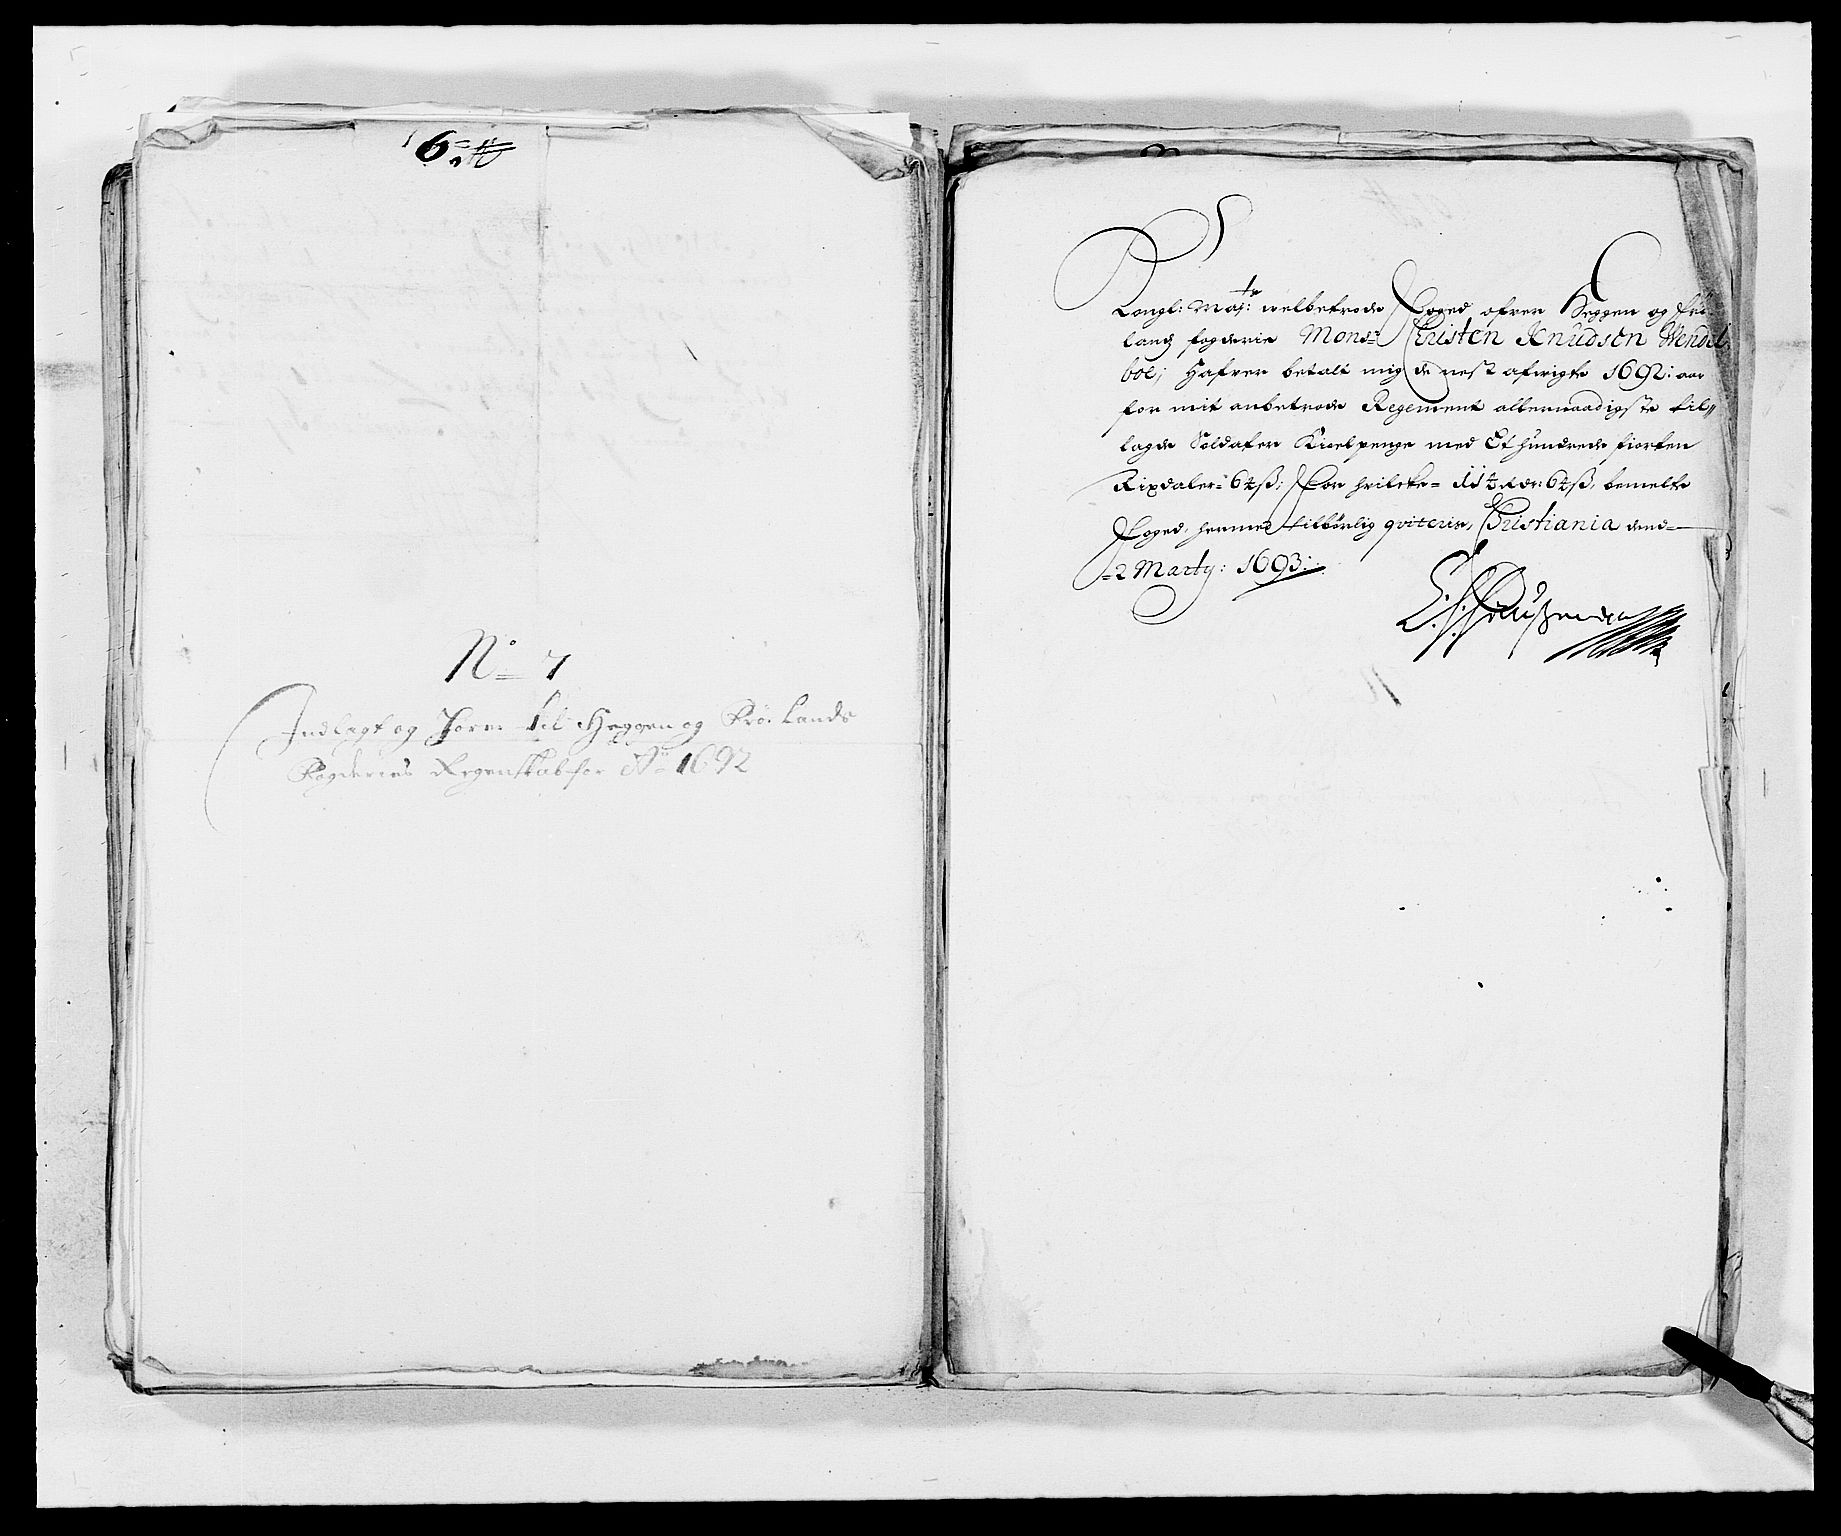 6
No 7
Indlagt og hører til Heggen og Frø: Lands
Fogderies Regenskab for Ao 1692
Kongl: Maj:ts welbetrode Foged ofver Heggen og Frø
lands fogderie Monsr Christen Knudsen Wendel
boe; Hafver betalt mig de nest afvigte 1692: aar
for mit anbetrode Regement allernaadigste til
lagde Soldater Kioelpenge med Et hundrede fiorten
Rixdaler 64 ß; For hvilcke 114 Rdr: 64 ß, bemelte
Foged, hermed tilbørlig qviteris, Christiania dend
2 Marty: 1693: